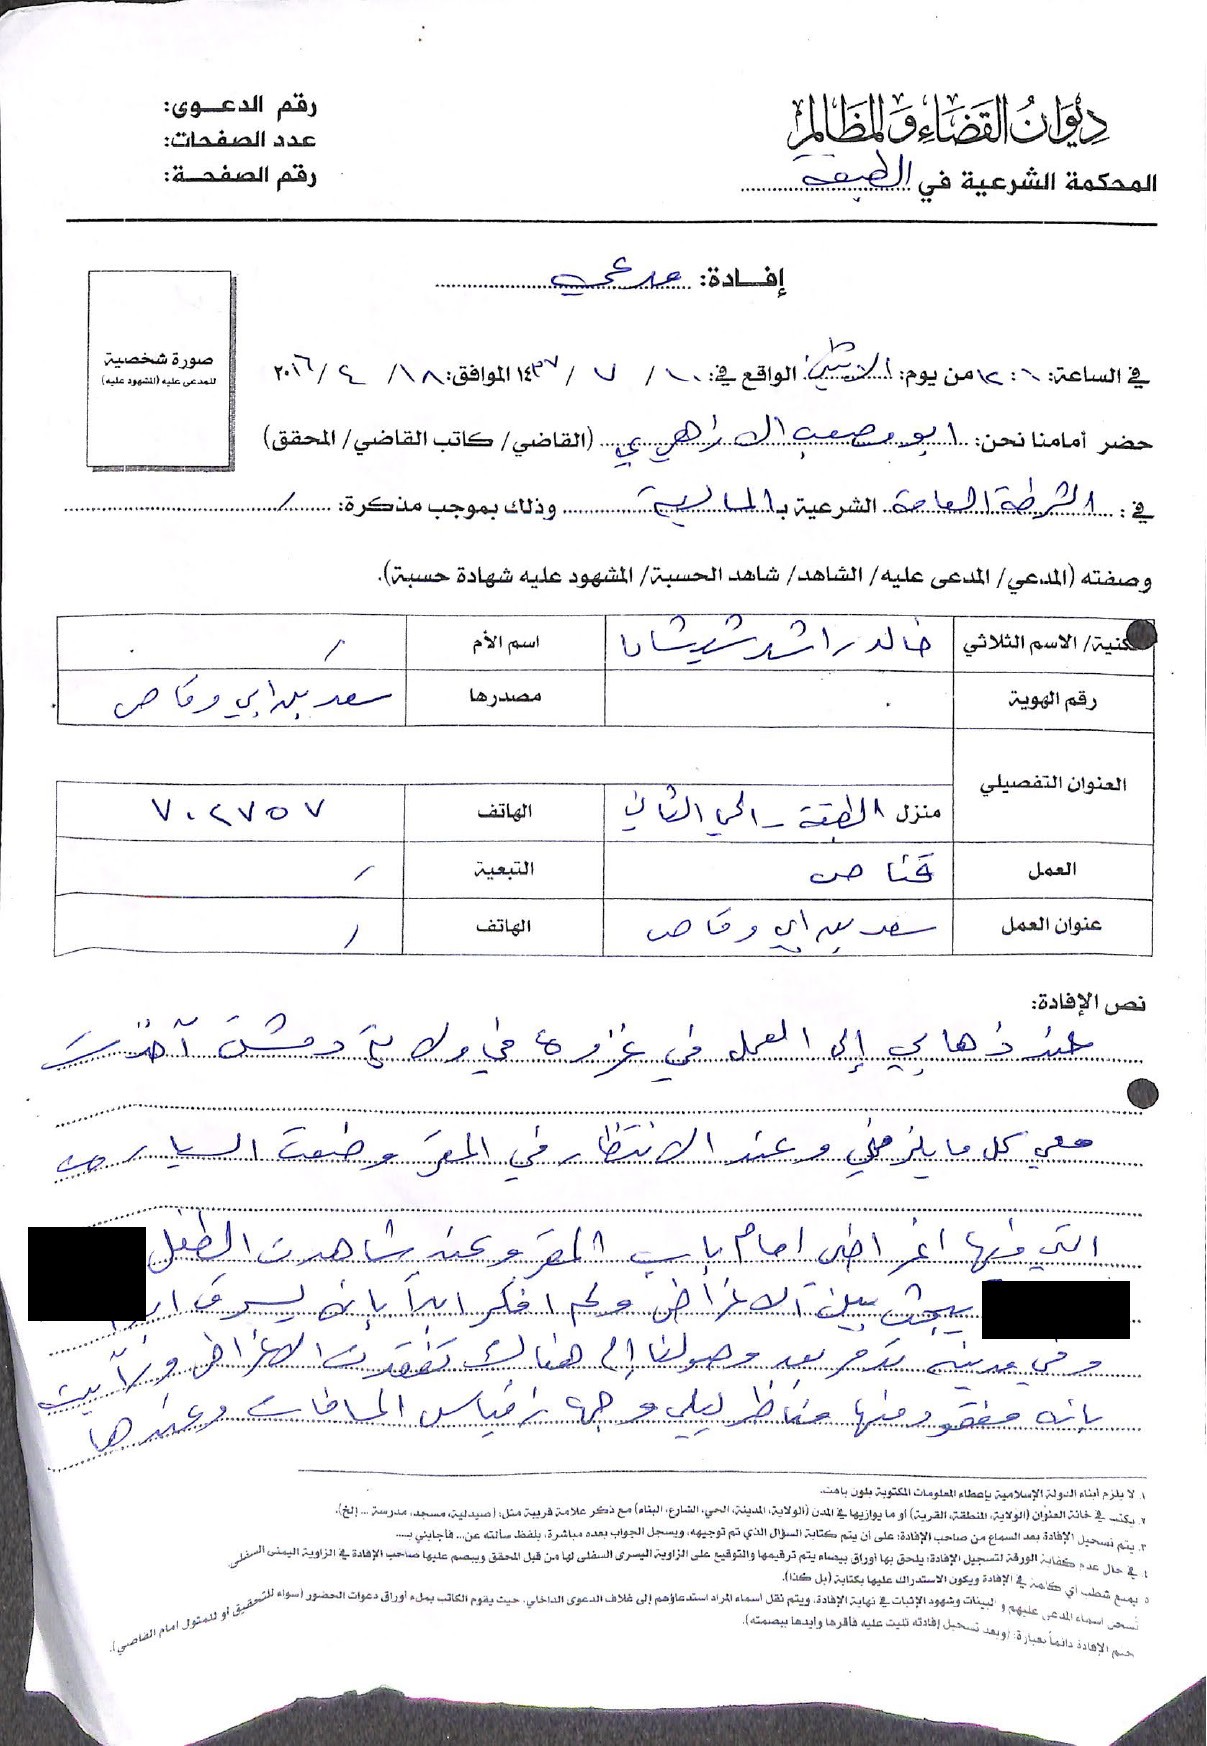 ديوان القضاء والمظالم
المحكمة الشرعية في الطبقة
رقم الدعوى:
عدد الصفحات:
رقم الصفحة:
إفادة: مدعي
صورة شخصية
للمدعى عليه (المشهود عليه)
في الساعة: ١٢:٠١ من يوم: الاثنين الواقع في: ١٠ / ٧ / ١٤٣٧ الموافق: ١٨ / ٤ / ٢٠١٦
حضر أمامنا نحن: ابو مصعب (القاضي/ كاتب القاضي/ المحقق)
في: الشرطة العامة الشرعية بـ وذلك بموجب مذكرة: /
وصفته (المدعي/ المدعى عليه/ الشاهد/ شاهد الحسبة/ المشهود عليه شهادة حسبة).
الكنية/ الاسم الثلاثي خالد راشد شيشان اسم الأم /
رقم الهوية مصدرها سعد بن ابي وقاص
العنوان التفصيلي
منزل الطبقة - الحي الثاني الهاتف ٧٠٢٧٥٧
العمل قناص التبعية /
عنوان العمل سعد بن ابي وقاص الهاتف /
نص الإفادة:
عند ذهابي إلى العمل في غزوة في ولاية دمشق أخذت
معي كل ما يلزمني وعند الانتظار في المقر وضعت السيارة
التي فيها اغراضي امام باب المقر وعند شاهدت الطفل
يبحث بين الاغراض ولم افكر ابدا بانه يسرق ابدا
وفي مدينة تدمر بعد وصولنا إلى هناك تفقدت الاغراض ورأيت
بانه مفقود منها مناظر ليلي وجهاز قياس المسافات وعندها
١. لا يلزم أبناء الدولة الإسلامية بإعطاء المعلومات المكتوبة بلون باهت.
٢. يكتب في خانة العنوان (الولاية، المنطقة، القرية) أو ما يوازيها في المدن (الولاية، المدينة، الحي، الشارع، البناء) مع ذكر علامة قريبة مثل: (صيدلية، مسجد، مدرسة ... إلخ).
٣. يتم تسجيل الإفادة بعد السماع من صاحب الإفادة؛ على أن يتم كتابة السؤال الذي تم توجيهه، ويسجل الجواب بعده مباشرة، بلفظ سألته عن... فأجابني بـ....
٤. في حال عدم كفاية الورقة لتسجيل الإفادة؛ يلحق بها أوراق بيضاء يتم ترقيمها والتوقيع على الزاوية اليسرى السفلى لها من قبل المحقق ويبصم عليها صاحب الإفادة في الزاوية اليمنى السفلى.
٥. يمنع شطب أي كلمة في الإفادة ويكون الاستدراك عليها بكتابة (بل كذا).
تسجل أسماء المدعى عليهم والبينات وشهود الإثبات في نهاية الإفادة، ويتم نقل أسماء المراد استدعاؤهم إلى غلاف الدعوى الداخلي، حيث يقوم الكاتب بملء أوراق دعوات الحضور (سواء للتحقيق أو للمثول أمام القاضي).
تختم الإفادة دائماً بعبارة: (وبعد تسجيل إفادته تليت عليه فأقرها وأيدها ببصمته).